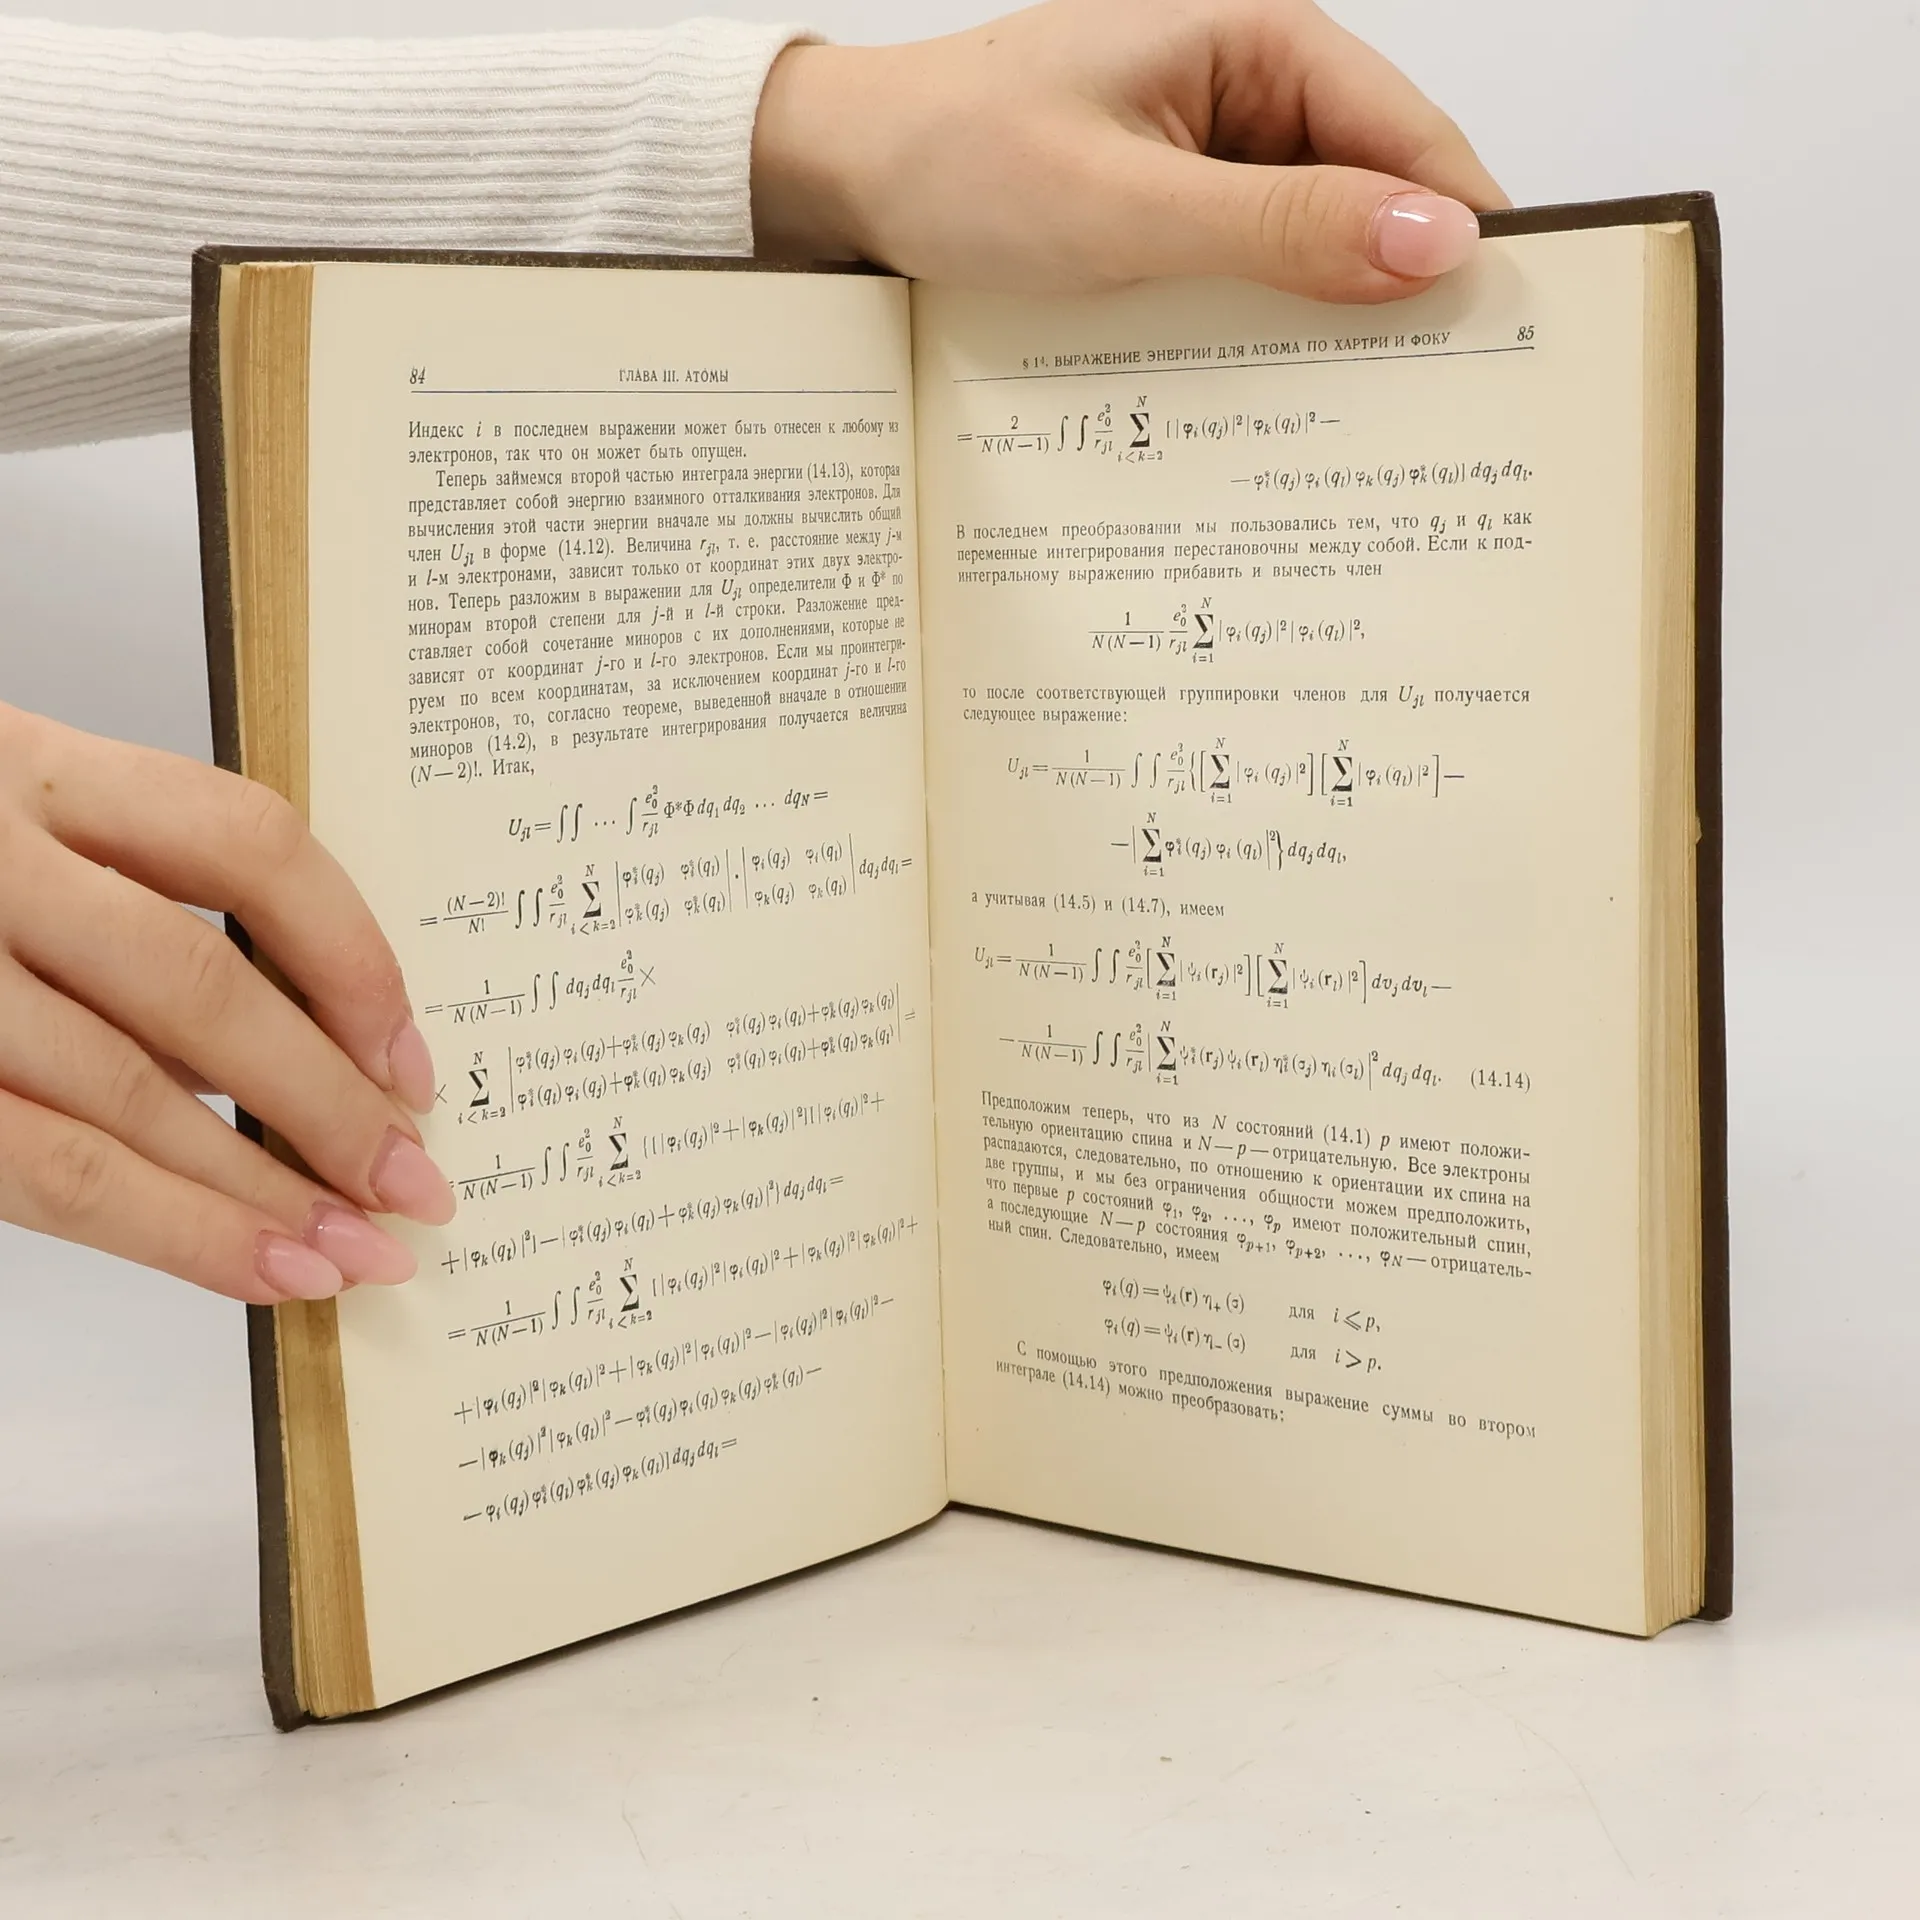 84
ГЛАВА III. АТОМЫ
Индекс i в последнем выражении может быть отнесен к любому из
электронов, так что он может быть опущен.
Теперь займемся второй частью интеграла энергии (14.13), которая
представляет собой энергию взаимного отталкивания электронов. Для
вычисления этой части энергии вначале мы должны вычислить общий
член U_{jl} в форме (14.12). Величина r_{jl}, т. е. расстояние между j-м
и l-м электронами, зависит только от координат этих двух электро-
нов. Теперь разложим в выражении для U_{jl} определители Φ и Φ* по
минорам второй степени для j-й и l-й строки. Разложение пред-
ставляет собой сочетание миноров с их дополнениями, которые не
зависят от координат j-го и l-го электронов. Если мы проинтегри-
руем по всем координатам, за исключением координат j-го и l-го
электронов, то, согласно теореме, выведенной вначале в отношении
миноров (14.2), в результате интегрирования получается величина
(N—2)!. Итак,
U_{jl} = ∫∫ ... ∫ \frac{e_0^2}{r_{jl}} Φ*Φ dq_1 dq_2 ... dq_N =
= \frac{(N—2)!}{N!} ∫∫ \frac{e_0^2}{r_{jl}} \sum_{i<k=2}^{N} \begin{vmatrix} φ_i^*(q_j) & φ_i^*(q_l) \\ φ_k^*(q_j) & φ_k^*(q_l) \end{vmatrix} · \begin{vmatrix} φ_i(q_j) & φ_i(q_l) \\ φ_k(q_j) & φ_k(q_l) \end{vmatrix} dq_j dq_l =
= \frac{1}{N(N—1)} ∫∫ dq_j dq_l \frac{e_0^2}{r_{jl}} ×
× \sum_{i<k=2}^{N} \begin{vmatrix} φ_i^*(q_j) φ_i(q_j) + φ_k^*(q_j) φ_k(q_j) & φ_i^*(q_j) φ_i(q_l) + φ_k^*(q_j) φ_k(q_l) \\ φ_i^*(q_l) φ_i(q_j) + φ_k^*(q_l) φ_k(q_j) & φ_i^*(q_l) φ_i(q_l) + φ_k^*(q_l) φ_k(q_l) \end{vmatrix} =
= \frac{1}{N(N—1)} ∫∫ \frac{e_0^2}{r_{jl}} \sum_{i<k=2}^{N} {[|φ_i(q_j)|^2 + |φ_k(q_j)|^2] [|φ_i(q_l)|^2 +
+ |φ_k(q_l)|^2] — |φ_i^*(q_j) φ_i(q_l) + φ_k^*(q_j) φ_k(q_l)|^2} dq_j dq_l =
= \frac{1}{N(N—1)} ∫∫ \frac{e_0^2}{r_{jl}} \sum_{i<k=2}^{N} [|φ_i(q_j)|^2 |φ_i(q_l)|^2 + |φ_k(q_j)|^2 |φ_k(q_l)|^2 +
+ |φ_i(q_j)|^2 |φ_k(q_l)|^2 + |φ_k(q_j)|^2 |φ_i(q_l)|^2 — |φ_i(q_j)|^2 |φ_i(q_l)|^2 —
— |φ_k(q_j)|^2 |φ_k(q_l)|^2 — φ_i^*(q_j) φ_i(q_l) φ_k(q_j) φ_k^*(q_l) —
— φ_i(q_j) φ_i^*(q_l) φ_k^*(q_j) φ_k(q_l)] dq_j dq_l =
§ 14. ВЫРАЖЕНИЕ ЭНЕРГИИ ДЛЯ АТОМА ПО ХАРТРИ И ФОКУ
85
= \frac{2}{N(N—1)} ∫∫ \frac{e_0^2}{r_{jl}} \sum_{i<k=2}^{N} [|φ_i(q_j)|^2 |φ_k(q_l)|^2 —
— φ_i^*(q_j) φ_i(q_l) φ_k(q_j) φ_k^*(q_l)] dq_j dq_l.
В последнем преобразовании мы пользовались тем, что q_j и q_l как
переменные интегрирования перестановочны между собой. Если к под-
интегральному выражению прибавить и вычесть член
\frac{1}{N(N—1)} \frac{e_0^2}{r_{jl}} \sum_{i=1}^{N} |φ_i(q_j)|^2 |φ_i(q_l)|^2,
то после соответствующей группировки членов для U_{jl} получается
следующее выражение:
U_{jl} = \frac{1}{N(N—1)} ∫∫ \frac{e_0^2}{r_{jl}} {[\sum_{i=1}^{N} |φ_i(q_j)|^2] [\sum_{i=1}^{N} |φ_i(q_l)|^2] —
— |\sum_{i=1}^{N} φ_i^*(q_j) φ_i(q_l)|^2} dq_j dq_l,
а учитывая (14.5) и (14.7), имеем
U_{jl} = \frac{1}{N(N—1)} ∫∫ \frac{e_0^2}{r_{jl}} [\sum_{i=1}^{N} |ψ_i(r_j)|^2] [\sum_{i=1}^{N} |ψ_i(r_l)|^2] dv_j dv_l —
— \frac{1}{N(N—1)} ∫∫ \frac{e_0^2}{r_{jl}} |\sum_{i=1}^{N} ψ_i^*(r_j) ψ_i(r_l) η_i^*(σ_j) η_i(σ_l)|^2 dq_j dq_l. (14.14)
Предположим теперь, что из N состояний (14.1) p имеют положи-
тельную ориентацию спина и N—p—отрицательную. Все электроны
распадаются, следовательно, по отношению к ориентации их спина на
две группы, и мы без ограничения общности можем предположить,
что первые p состояний φ_1, φ_2, ..., φ_p имеют положительный спин,
а последующие N—p состояния φ_{p+1}, φ_{p+2}, ..., φ_N—отрицатель-
ный спин. Следовательно, имеем
φ_i(q) = ψ_i(r) η_+(σ) для i ⩽ p,
φ_i(q) = ψ_i(r) η_−(σ) для i > p.
С помощью этого предположения выражение суммы во втором
интеграле (14.14) можно преобразовать: